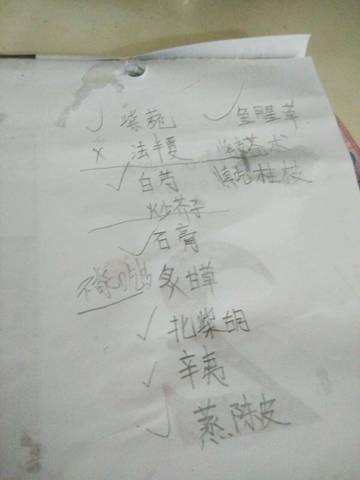 紫菀 鱼腥草
法半夏 苍术
白芍 桂枝
炒芥子
石膏
炙甘草
北柴胡
辛夷
蒸陈皮